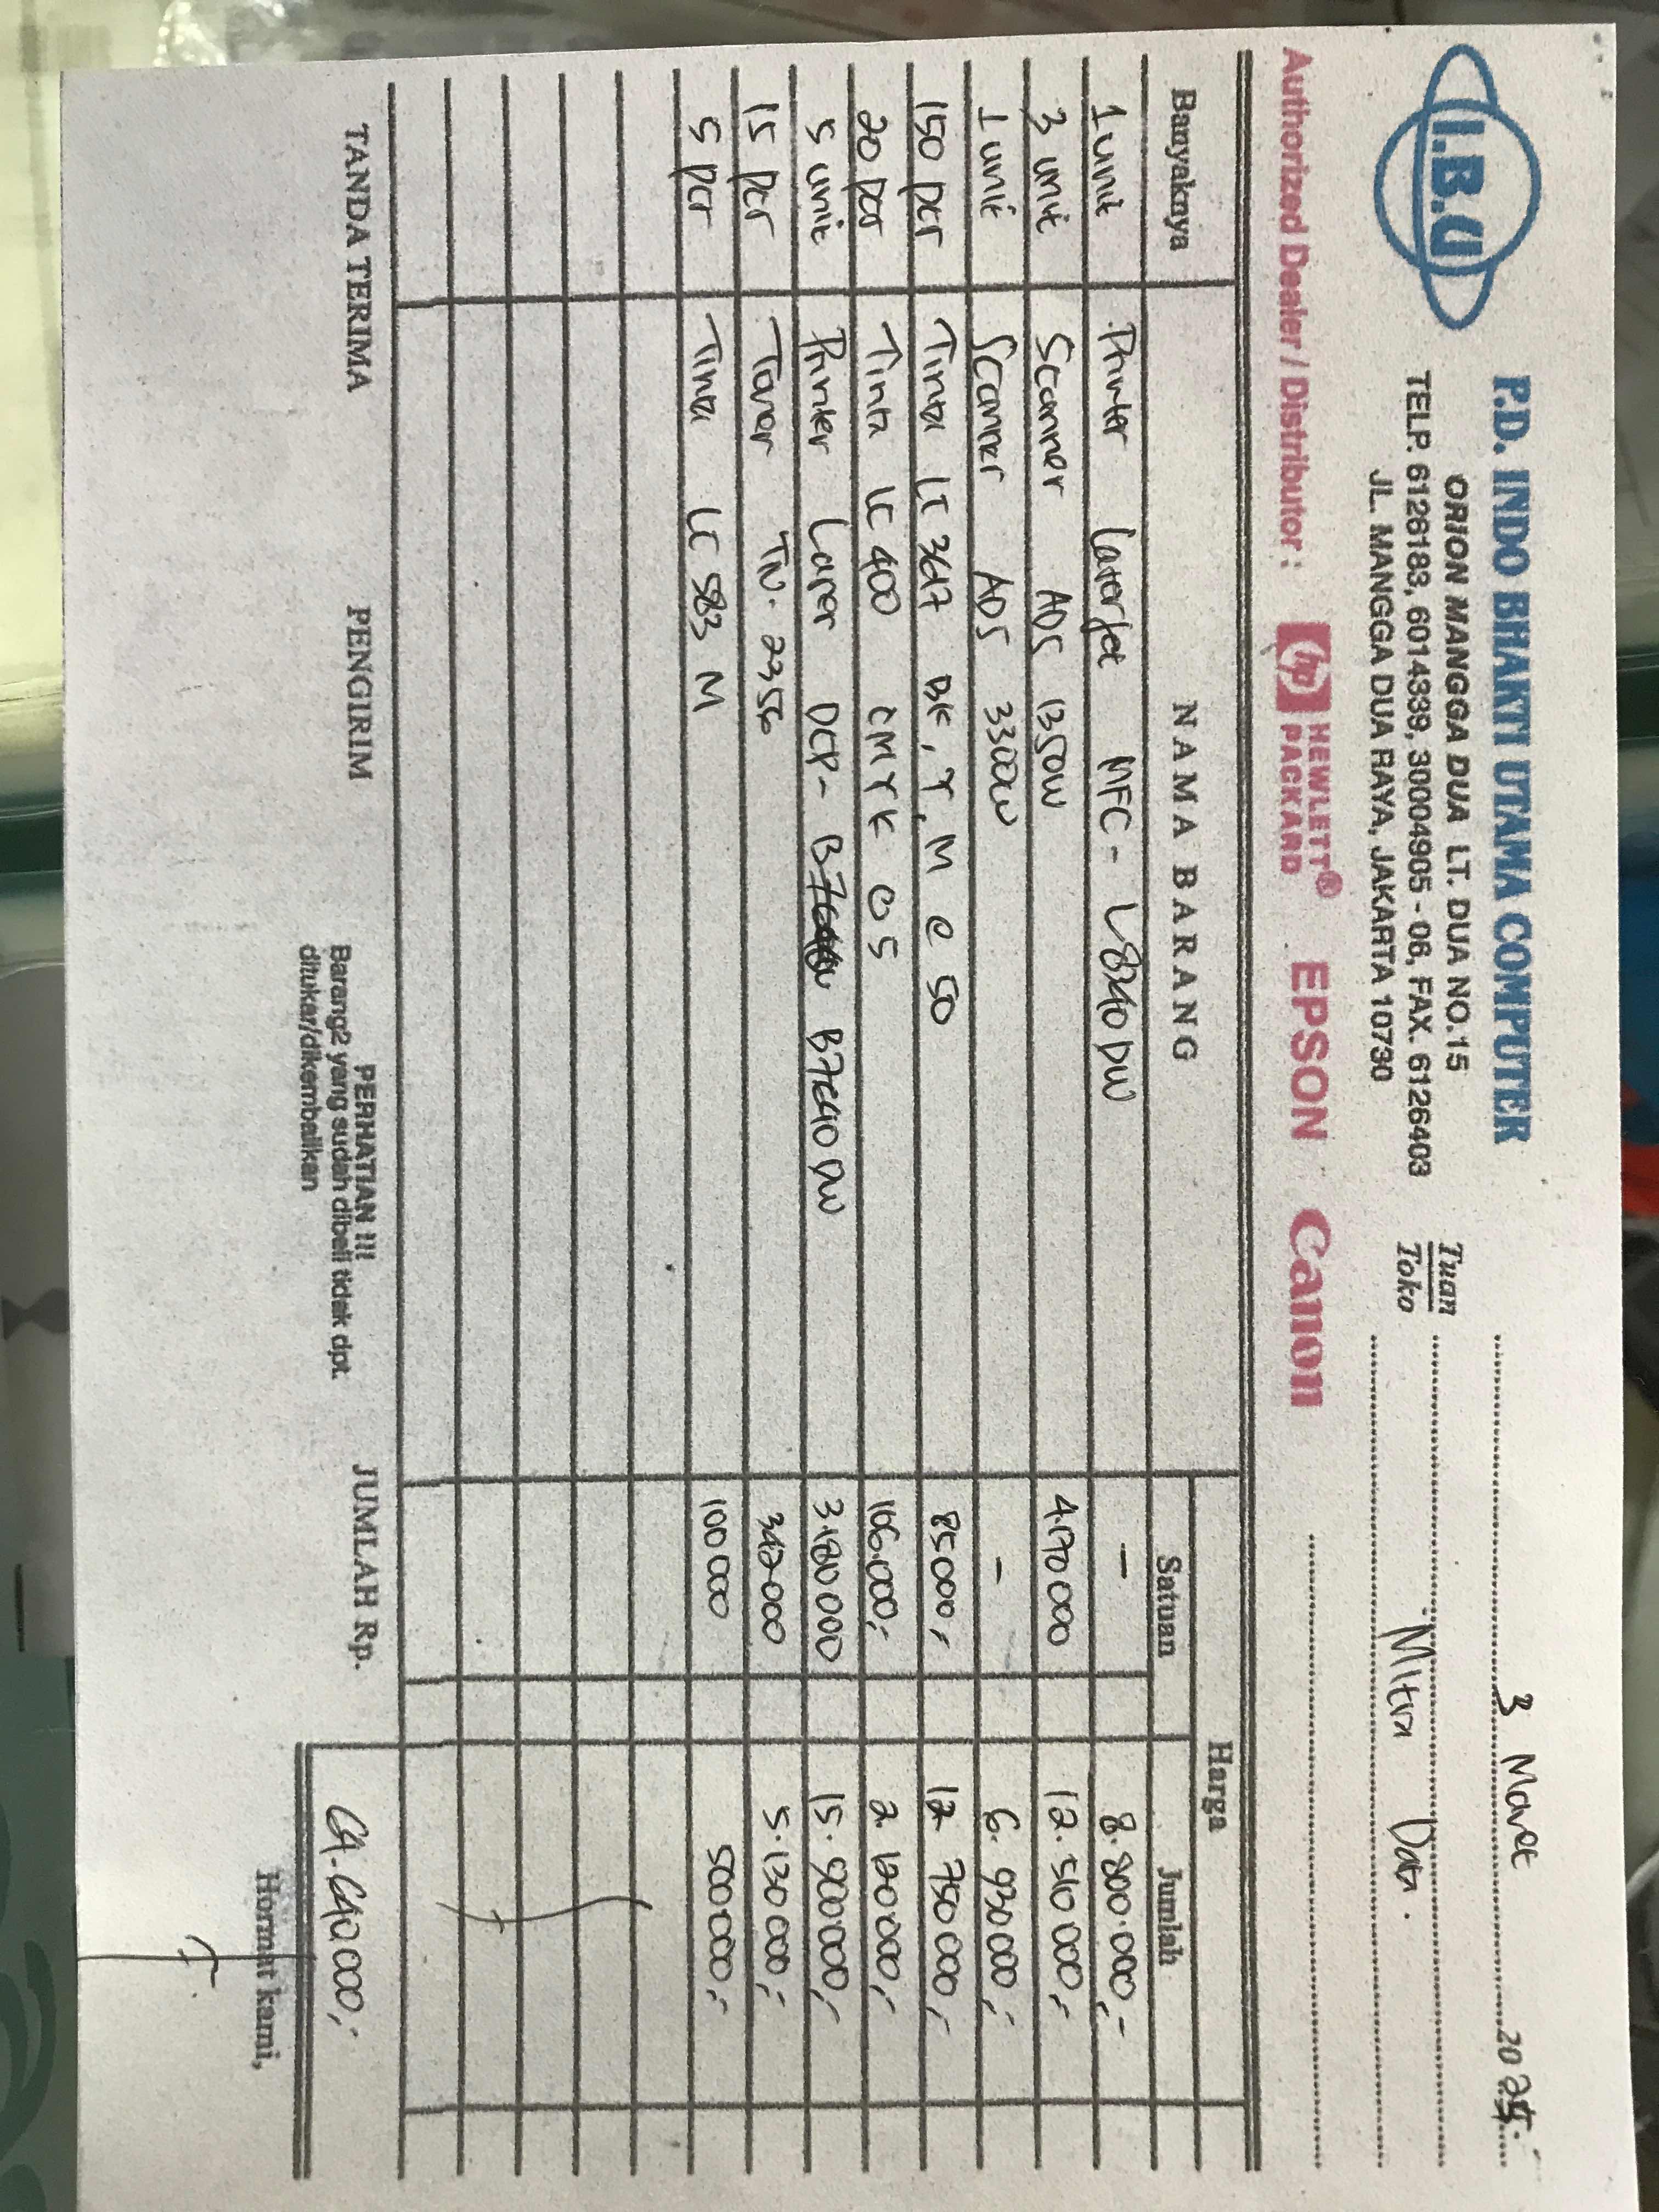 I.B.U
P.D. INDO BHAKTI UTAMA COMPUTER
ORION MANGGA DUA LT. DUA NO.15
TELP. 6126183, 6014339, 30004905 - 06, FAX. 6126403
JL. MANGGA DUA RAYA, JAKARTA 10730
3 Maret 2025
Tuan
Toko
Mitra Data.
Authorized Dealer / Distributor : hp HEWLETT® PACKARD EPSON Canon
Banyaknya NAMA BARANG Harga
Satuan Jumlah
1 unit Printer Laserjet MFC - L8340DW - 8.800.000,-
3 unit Scanner ADS 1350W 4.170 000 12.510 000,-
1 unit Scanner ADS 3300W - 6.930 000,-
150 pcs Tinta LC 3617 BK, Y, M @ 50 85 000,- 12.750 000,-
20 pcs Tinta LC 400 CMYK @ 5 106.000,- 2.120.000,-
5 unit Printer Laser DCP- B7640DW 3.180 000 15.900.000,-
15 pcs Toner TN. 2356 342.000 5.130 000,-
5 pcs Tinta LC 583 M 100 000 500.000,-
TANDA TERIMA PENGIRIM PERHATIAN !!! JUMLAH Rp. 64.640 000,-
Barang2 yang sudah dibeli tidak dpt.
ditukar/dikembalikan
Hormat kami,